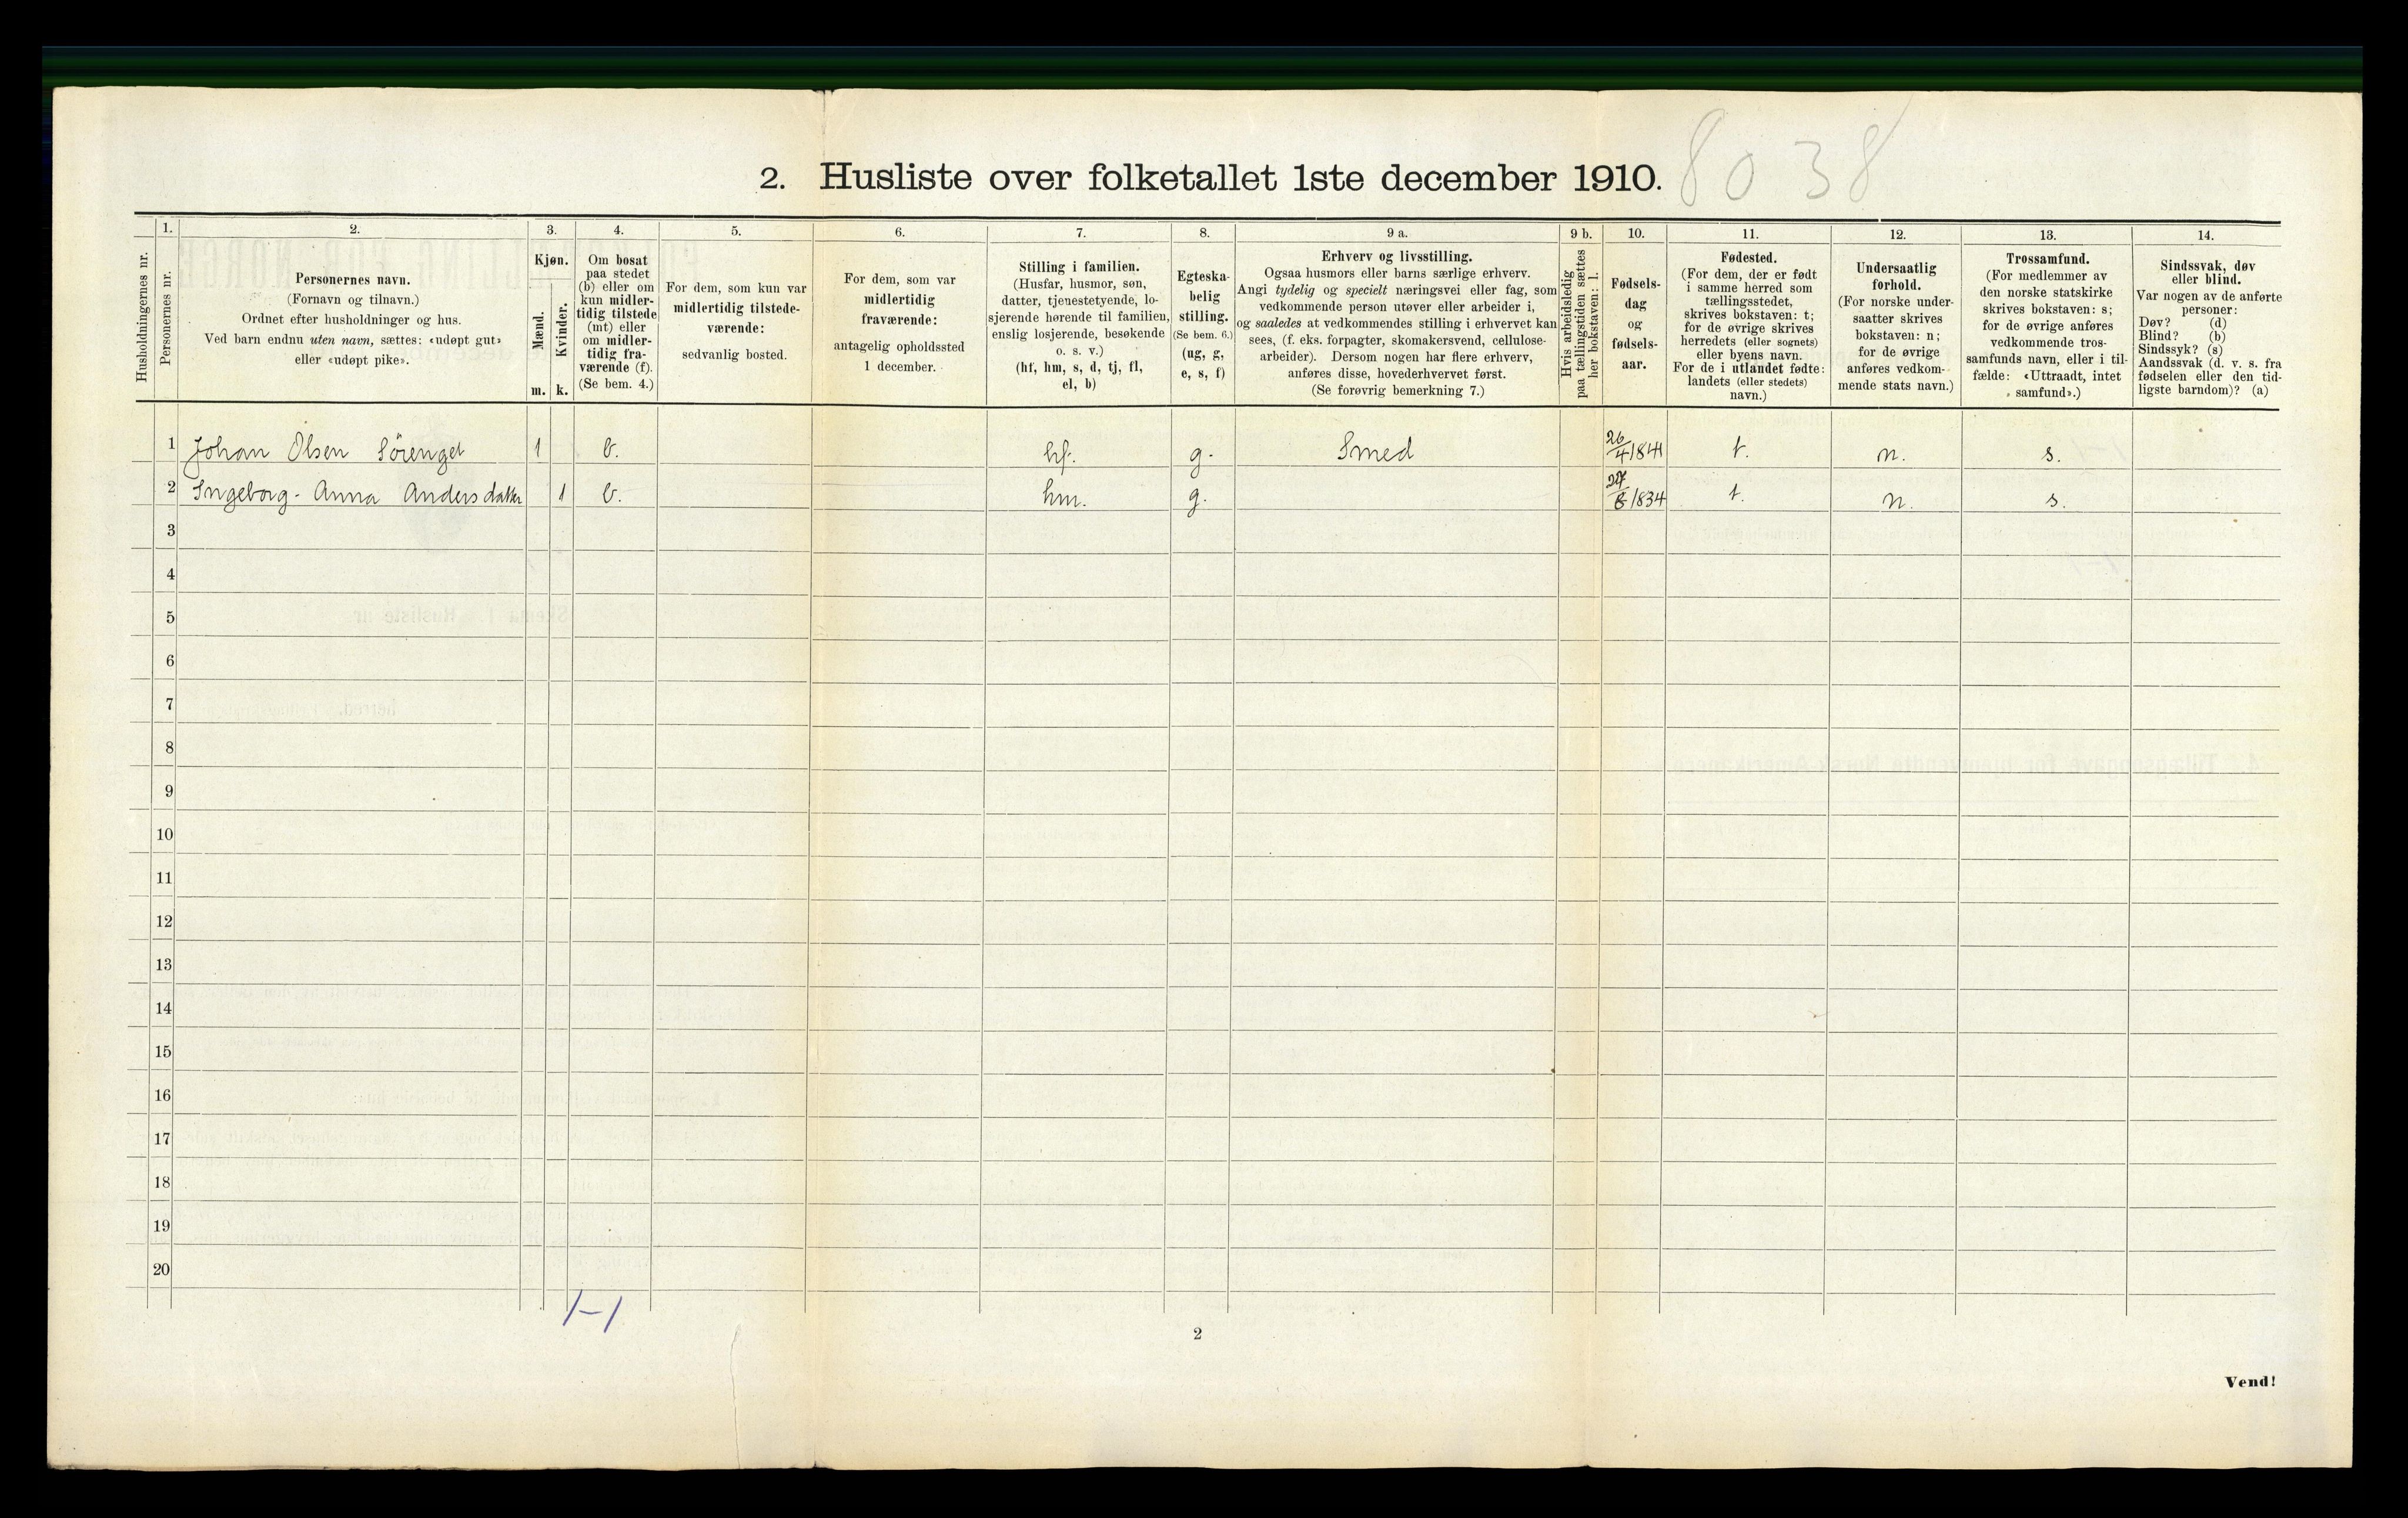 2. Husliste over folketallet 1ste december 1910. 8038
Husholdningernes nr.
1.
Personernes nr.
2.
Personernes navn.
(Fornavn og tilnavn.)
Ordnet efter husholdninger og hus.
Ved barn endnu uten navn, sættes: «udøpt gut»
eller «udøpt pike».
3.
Kjøn.
Mænd.
m.
Kvinder.
k.
4.
Om bosat
paa stedet
(b) eller om
kun midler-
tidig tilstede
(mt) eller
om midler-
tidig fra-
værende (f).
(Se bem. 4.)
5.
For dem, som kun var
midlertidig tilstede-
værende:
sedvanlig bosted.
6.
For dem, som var
midlertidig
fraværende:
antagelig opholdssted
1 december.
7.
Stilling i familien.
(Husfar, husmor, søn,
datter, tjenestetyende, lo-
sjerende hørende til familien,
enslig losjerende, besøkende
o. s. v.)
(hf, hm, s, d, tj, fl,
el, b)
8.
Egteska-
belig
stilling.
(Se bem. 6.)
(ug, g,
e, s, f)
9 a.
Erhverv og livsstilling.
Ogsaa husmors eller barns særlige erhverv.
Angi tydelig og specielt næringsvei eller fag, som
vedkommende person utøver eller arbeider i,
og saaledes at vedkommendes stilling i erhvervet kan
sees, (f. eks. forpagter, skomakersvend, cellulose-
arbeider). Dersom nogen har flere erhverv,
anføres disse, hovederhvervet først.
(Se forøvrig bemerkning 7.)
9 b.
Hvis arbeidsledig
paa tællingstiden sættes
her bokstaven: l.
10.
Fødsels-
dag
og
fødsels-
aar.
11.
Fødested.
(For dem, der er født
i samme herred som
tællingsstedet,
skrives bokstaven: t;
for de øvrige skrives
herredets (eller sognets)
eller byens navn.
For de i utlandet fødte:
landets (eller stedets)
navn.)
12.
Undersaatlig
forhold.
(For norske under-
saatter skrives
bokstaven: n;
for de øvrige
anføres vedkom-
mende stats navn.)
13.
Trossamfund.
(For medlemmer av
den norske statskirke
skrives bokstaven: s;
for de øvrige anføres
vedkommende tros-
samfunds navn, eller i til-
fælde: «Uttraadt, intet
samfund».)
14.
Sindssvak, døv
eller blind.
Var nogen av de anførte
personer:
Døv? (d)
Blind? (b)
Sindssyk? (s)
Aandssvak (d. v. s. fra
fødselen eller den tid-
ligste barndom)? (a)
1 Johan Olsen Sörenget 1 b. hf. g. Smed 26/4 1841 t. n. s.
2 Ingeborg-Anna Andersdatter 1 b. hm. g. 27/8 1834 t. n. s.
3
4
5
6
7
8
9
10
11
12
13
14
15
16
17
18
19
20
1-1
2
Vend!